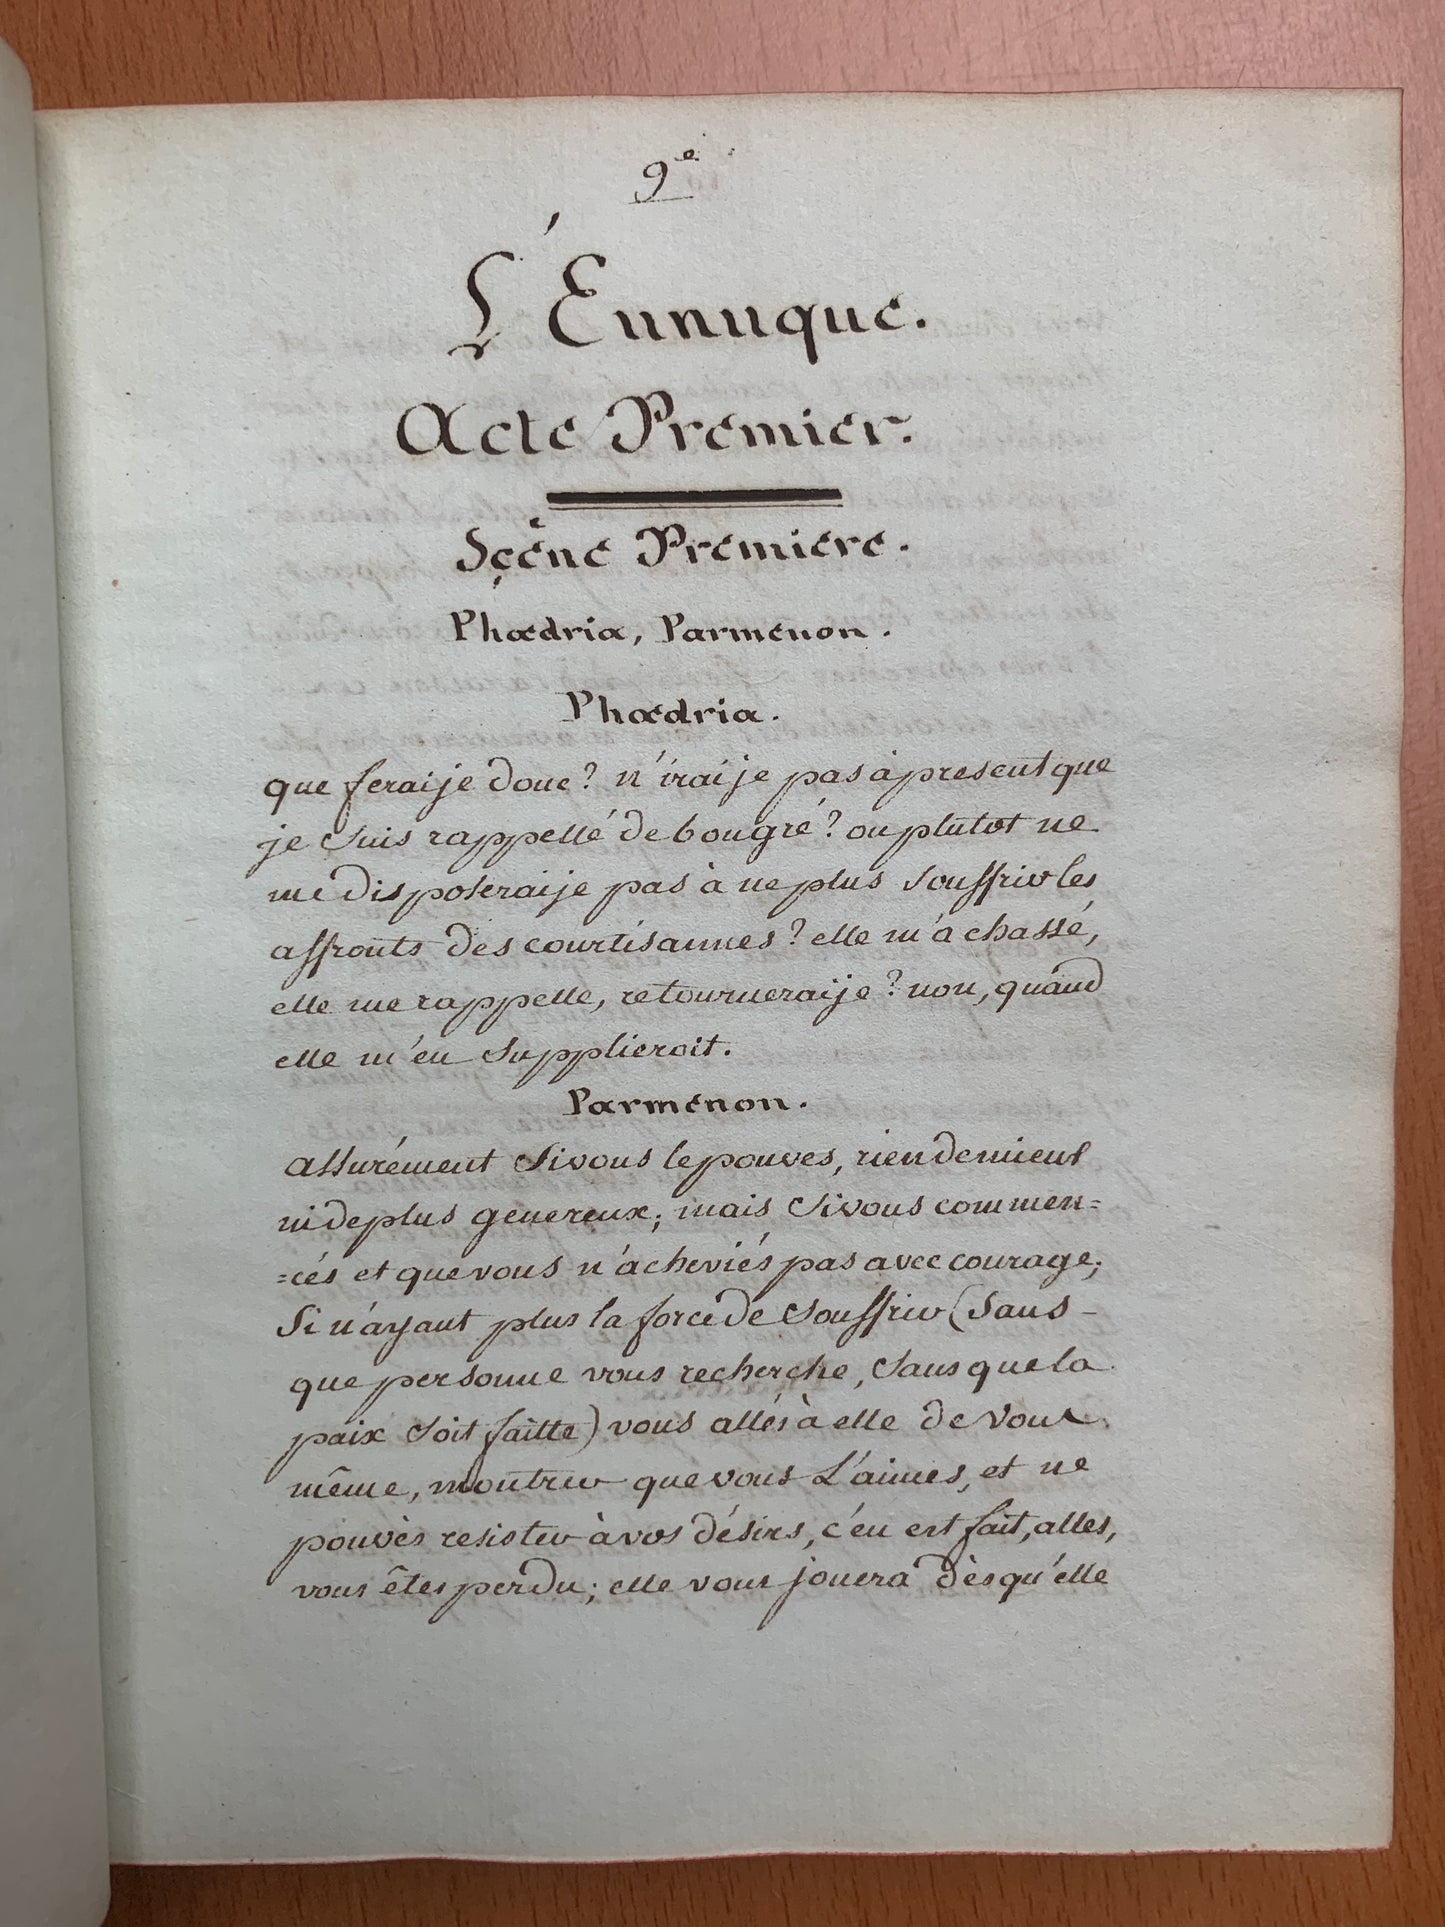 9e
L'Eunuque.
Acte Premier.
Sçêne Premiere.
Phœdria, Parmenon.
Phœdria.
que feraije donc? n'iraije pas àpresent que
je suis rappellé de bongré? ou plutot ne
me disposeraije pas à ne plus souffrir les
affronts des courtisannes? elle m'a chassé,
elle me rappelle, retourneraije? non, quand
elle m'en supplieroit.
Parmenon.
assurément si vous le pouves, rien de mieux
ni de plus genereux; mais si vous commen=
=cés et que vous n'acheviés pas avec courage;
si n'ayant plus la force de souffrir (sans-
que personne vous recherche, sans que la
paix soit faitte) vous allés à elle de vous
même, montrer que vous L'aimes, et ne
pouvès resister à vos désirs, c'en est fait, alles,
vous êtes perdu; elle vous jouera dès qu'elle